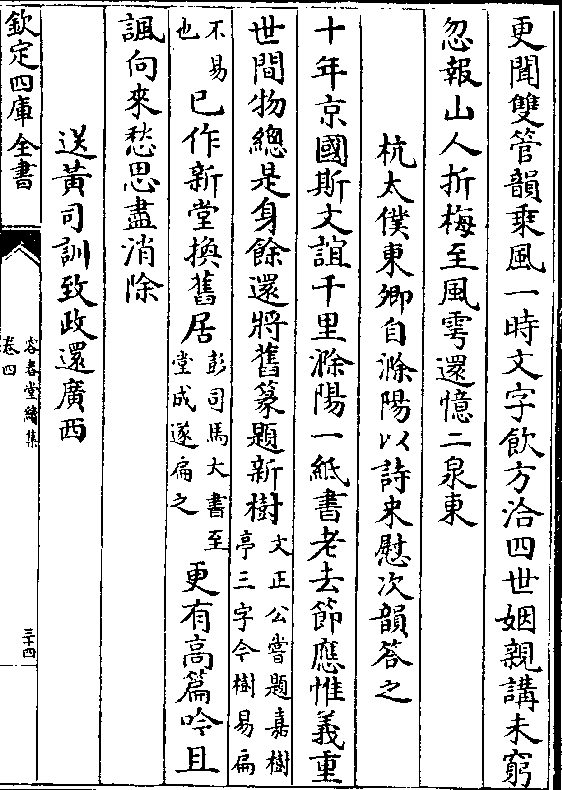 更聞雙管韻乗風一時文字飲方洽四世姻親講未窮
忽報山人折梅至風雩還憶二泉東
杭太僕東卿自滁陽以詩來慰次韻答之
十年京國斯文誼千里滁陽一紙書老去節應惟義重
世間物總是身餘還將舊篆題新樹文正公嘗題嘉樹亭三字今樹易扁
不易也已作新堂換舊居彭司馬大書至堂成遂扁之更有高篇吟且
諷向來愁思盡消除
送黄司訓致政還廣西
欽定四庫全書
容春堂續集
卷四
三十四